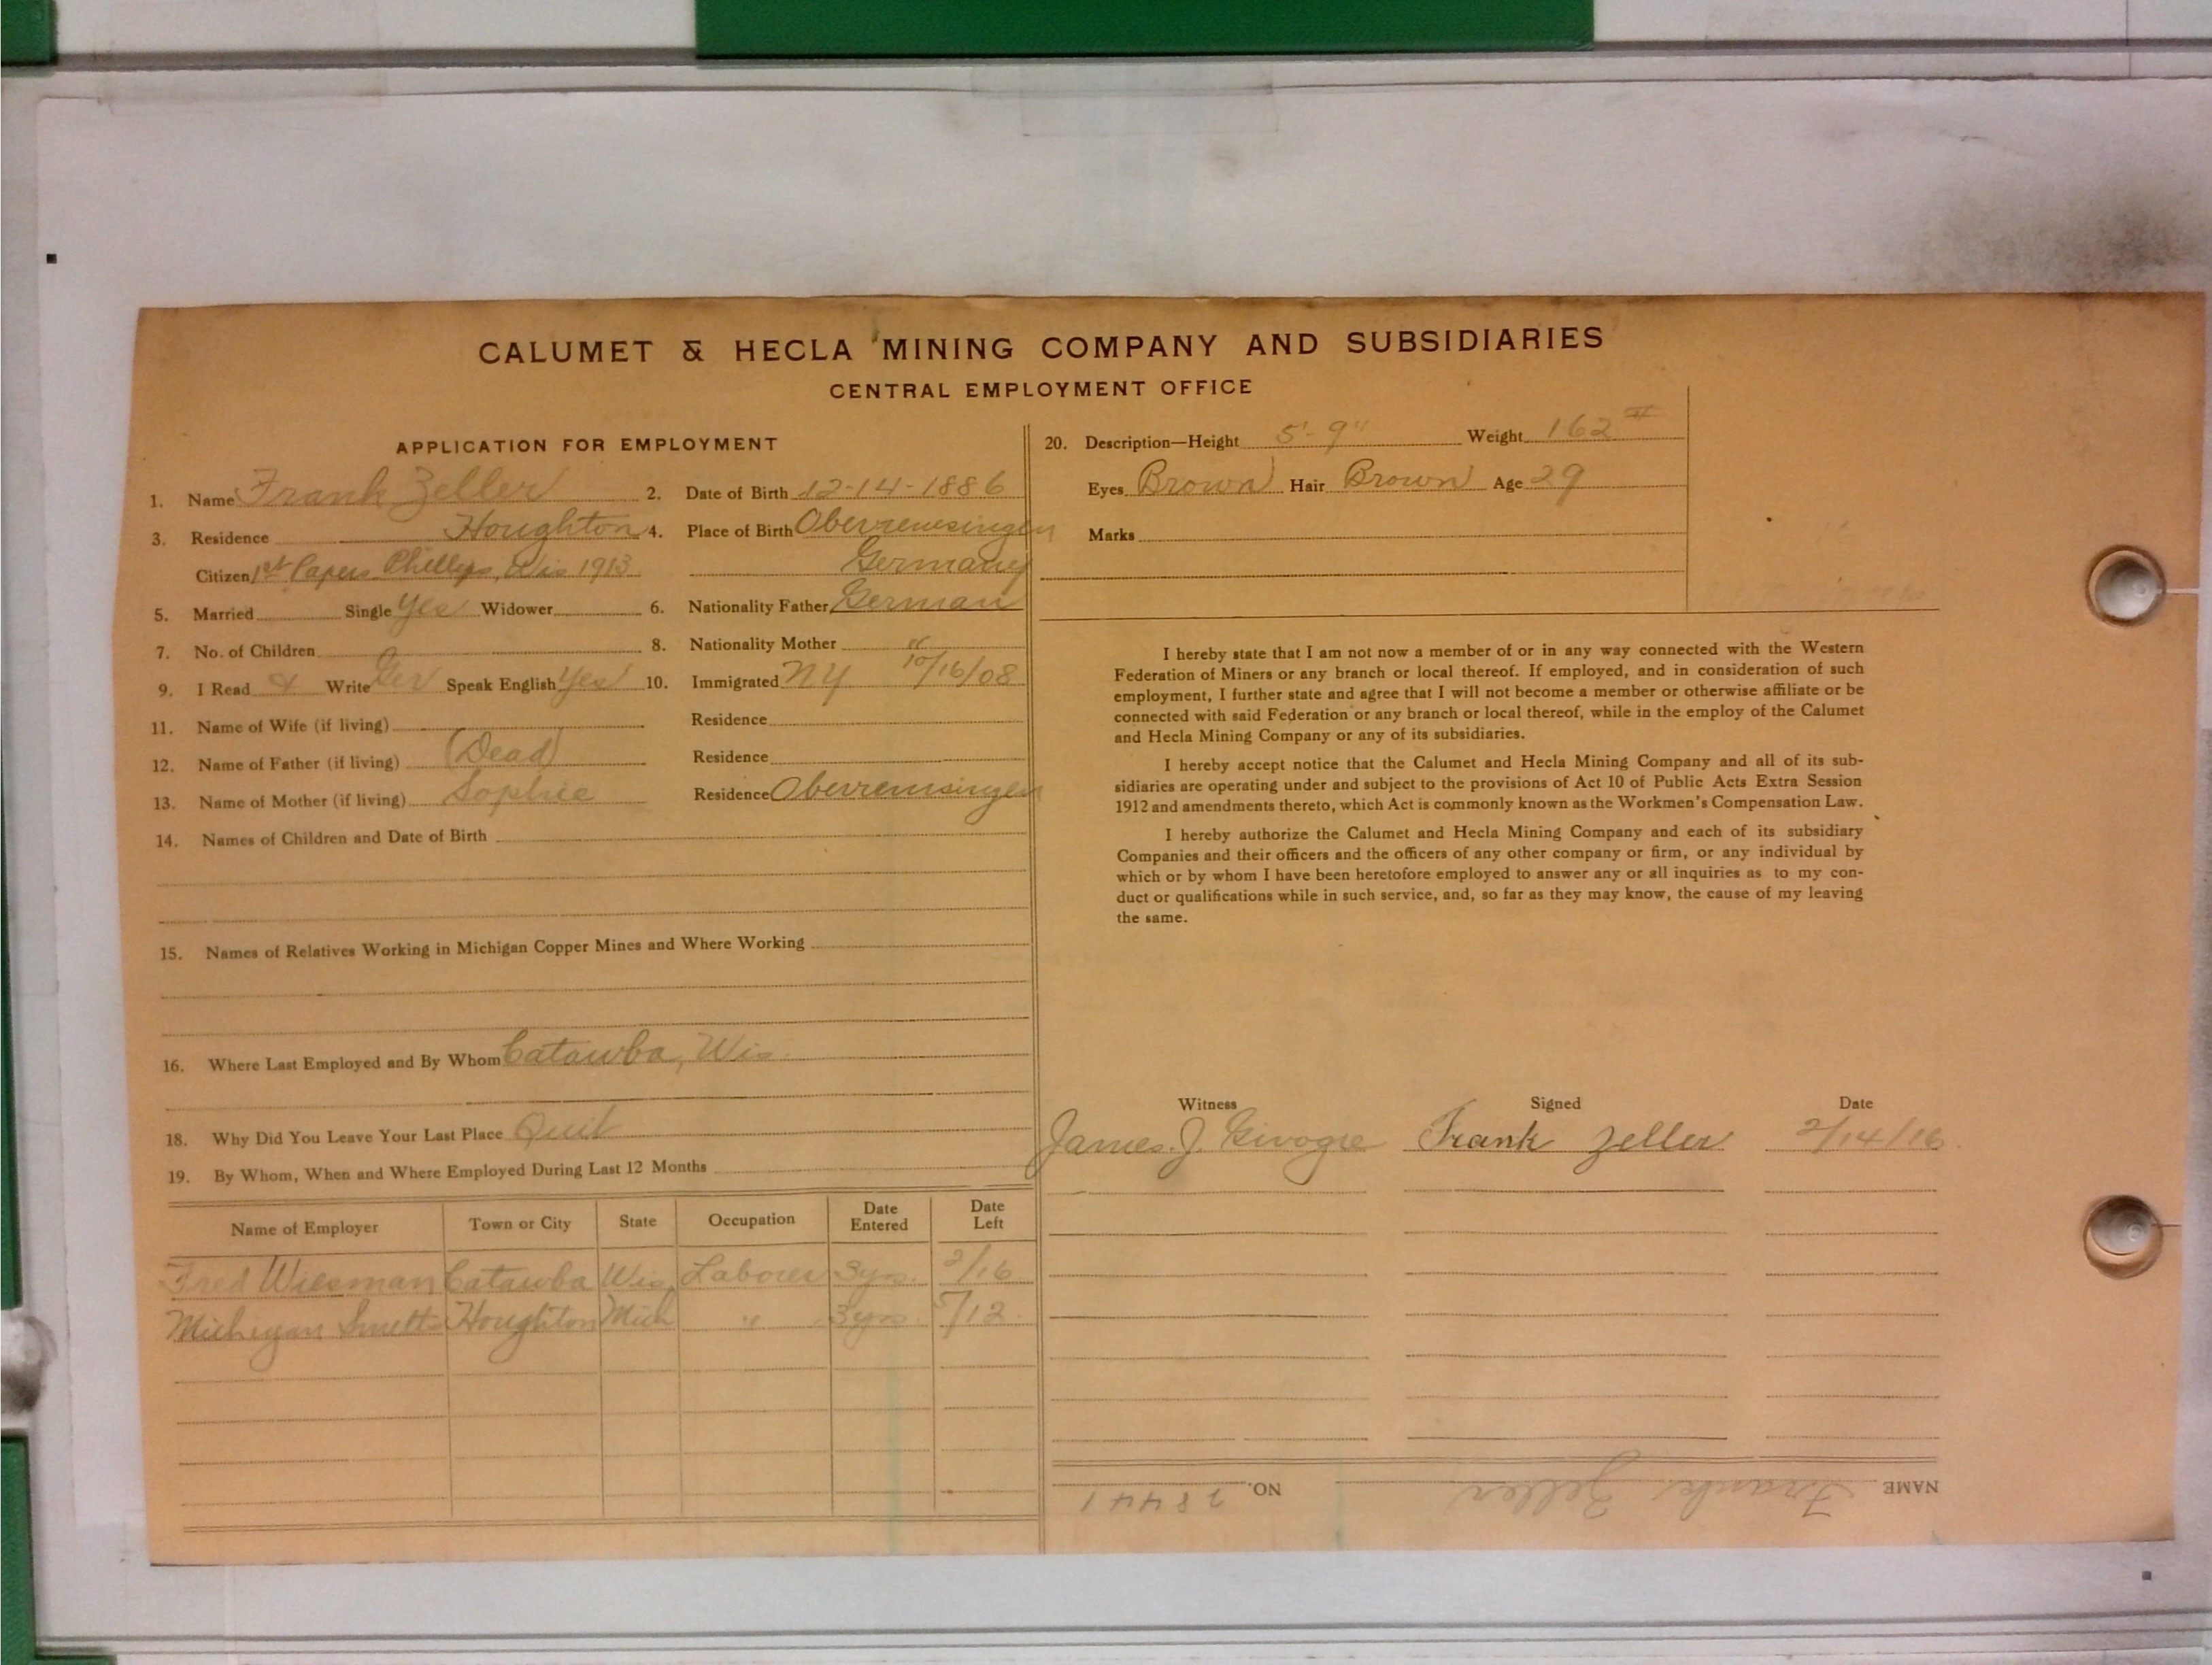 CALUMET & HECLA MINING COMPANY AND SUBSIDIARIES
CENTRAL EMPLOYMENT OFFICE
APPLICATION FOR EMPLOYMENT
1. Name Frank Zeller 2. Date of Birth 12-14-1886
3. Residence Houghton 4. Place of Birth Oberremsingen
Citizen 1st Papers Phillips, Wis 1913 Germany
5. Married Single Yes Widower 6. Nationality Father German
7. No. of Children 8. Nationality Mother "
9. I Read & Write Ger Speak English Yes 10. Immigrated NY 10/16/08
11. Name of Wife (if living) Residence
12. Name of Father (if living) (Dead) Residence
13. Name of Mother (if living) Sophie Residence Oberremsingen
14. Names of Children and Date of Birth
15. Names of Relatives Working in Michigan Copper Mines and Where Working
16. Where Last Employed and By Whom Catawba, Wis.
18. Why Did You Leave Your Last Place Quit
19. By Whom, When and Where Employed During Last 12 Months
Name of Employer Town or City State Occupation Date Entered Date Left
Fred Wiesman Catawba Wis. Laborer 3yrs. 2/16
Michigan Smelt Houghton Mich " 3yrs. 5/12
20. Description—Height 5'-9" Weight 162 #
Eyes Brown Hair Brown Age 29
Marks
I hereby state that I am not now a member of or in any way connected with the Western
Federation of Miners or any branch or local thereof. If employed, and in consideration of such
employment, I further state and agree that I will not become a member or otherwise affiliate or be
connected with said Federation or any branch or local thereof, while in the employ of the Calumet
and Hecla Mining Company or any of its subsidiaries.
I hereby accept notice that the Calumet and Hecla Mining Company and all of its sub-
sidiaries are operating under and subject to the provisions of Act 10 of Public Acts Extra Session
1912 and amendments thereto, which Act is commonly known as the Workmen's Compensation Law.
I hereby authorize the Calumet and Hecla Mining Company and each of its subsidiary
Companies and their officers and the officers of any other company or firm, or any individual by
which or by whom I have been heretofore employed to answer any or all inquiries as to my con-
duct or qualifications while in such service, and, so far as they may know, the cause of my leaving
the same.
Witness Signed Date
James. J. Frank Zeller 2/14/16
NAME Frank Zeller NO. 28441